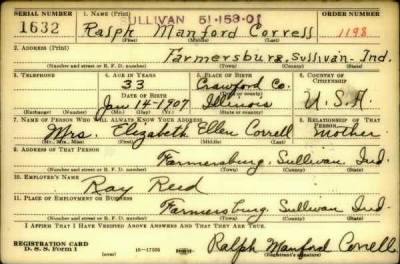 SERIAL NUMBER 1. NAME (Print) ORDER NUMBER
ULLIVAN 51-153-01
1632 Ralph Manford Corress 1198
(First) (Middle) (Last)
2. ADDRESS (Print)
Farmersburg, Sullivan - Ind.
(Number and street or R. F. D. number) (Town) (County) (State)
3. TELEPHONE 4. AGE IN YEARS 5. PLACE OF BIRTH 6. COUNTRY OF CITIZENSHIP
33 Crawford Co.
DATE OF BIRTH (Town or county)
Jan 14-1907 Illinois U.S.A.
(Exchange) (Number) (Mo.) (Day) (Yr.) (State or country)
7. NAME OF PERSON WHO WILL ALWAYS KNOW YOUR ADDRESS 8. RELATIONSHIP OF THAT PERSON
Mrs. Elizabeth Ellen Correll Mother
(Mr., Mrs., Miss) (First) (Middle) (Last)
9. ADDRESS OF THAT PERSON
Farmersburg, Sullivan Ind.
(Number and street or R. F. D. number) (Town) (County) (State)
10. EMPLOYER'S NAME
Ray Reed
11. PLACE OF EMPLOYMENT OR BUSINESS
Farmersburg Sullivan Ind.
(Number and street or R. F. D. number) (Town) (County) (State)
I AFFIRM THAT I HAVE VERIFIED ABOVE ANSWERS AND THAT THEY ARE TRUE.
REGISTRATION CARD
D. S. S. Form 1 (over) 16-17105 Ralph Manford Correll